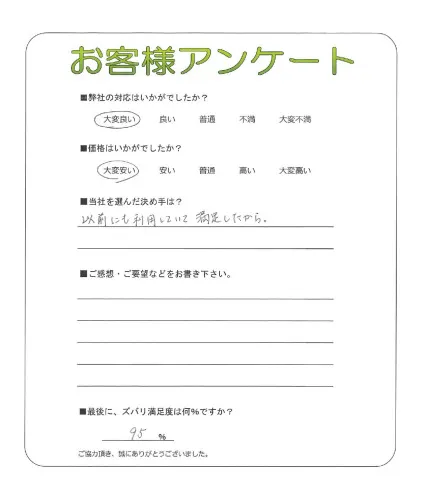 お客様アンケート
■弊社の対応はいかがでしたか？
大変良い 良い 普通 不満 大変不満
■価格はいかがでしたか？
大変安い 安い 普通 高い 大変高い
■当社を選んだ決め手は？
以前にも利用していて 満足したから。
■ご感想・ご要望などをお書き下さい。
■最後に、ズバリ満足度は何%ですか？
95 %
ご協力頂き、誠にありがとうございました。